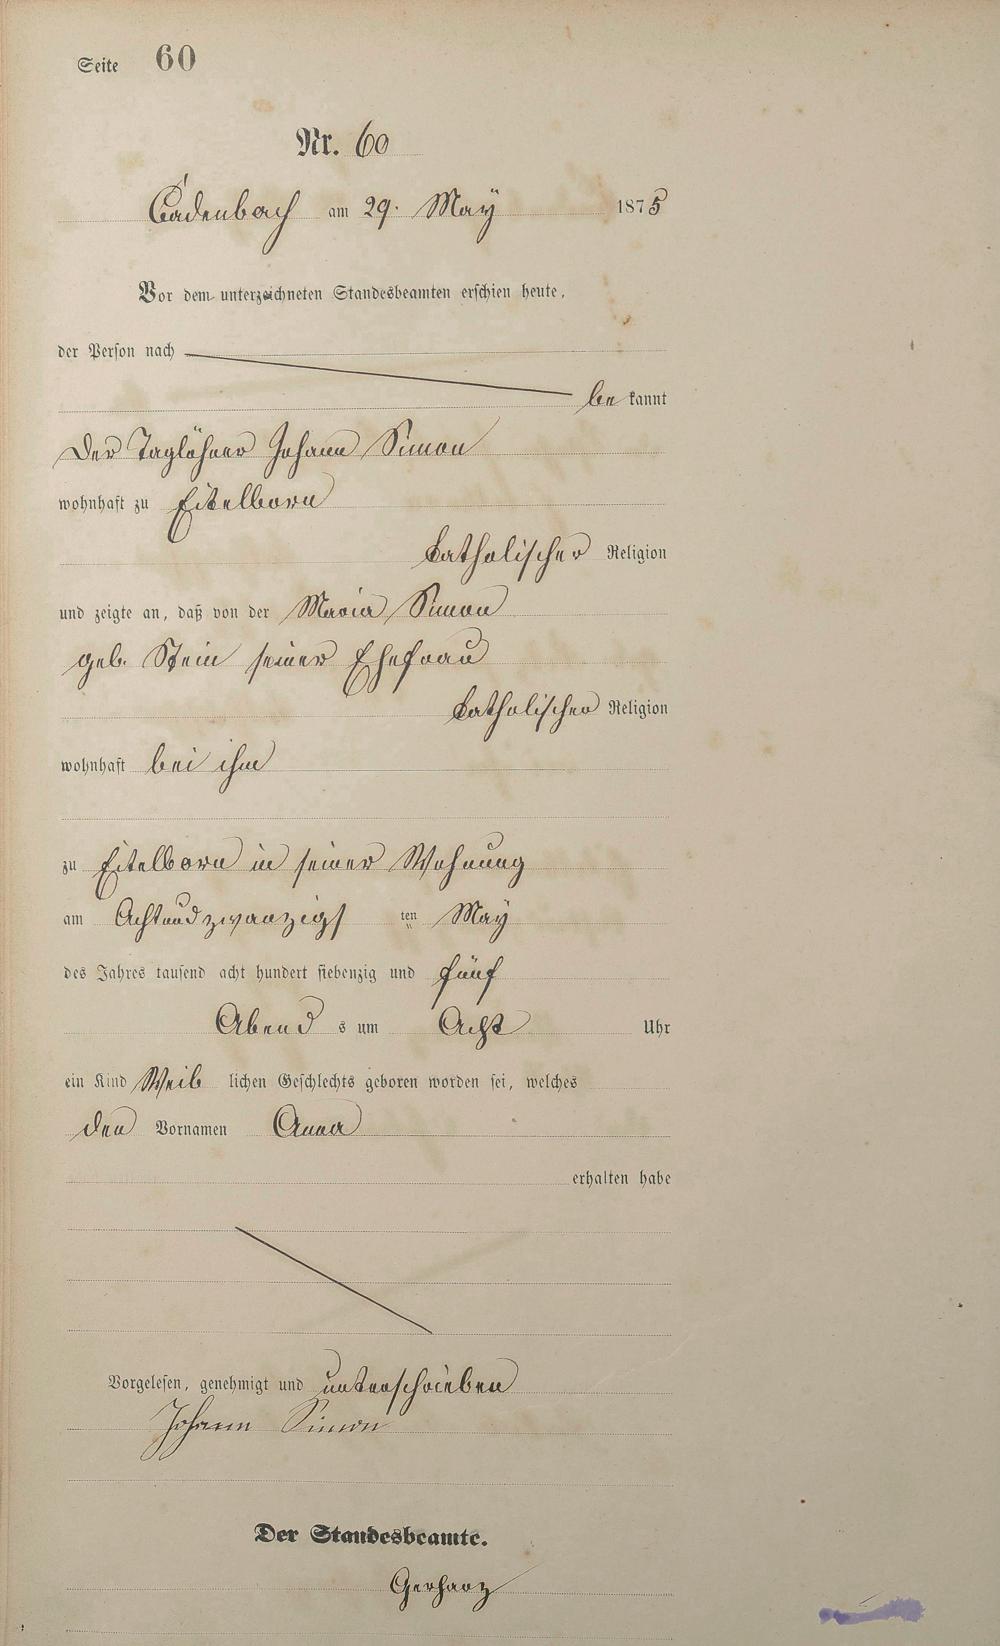 Seite 60
Nr. 60
Cadenbach am 29. May 1875
Vor dem unterzeichneten Standesbeamten erschien heute,
der Person nach
be kannt
Der Taglöhner Johann Simon
wohnhaft zu Eitelborn
katholischer Religion
und zeigte an, daß von der Maria Simon
geb. Stein seiner Ehefrau
katholischer Religion
wohnhaft bei ihm
zu Eitelborn in seiner Wohnung
am Achtundzwanzigs ten May
des Jahres tausend acht hundert siebenzig und fünf
Abend s um Acht Uhr
ein Kind Weib lichen Geschlechts geboren worden sei, welches
den Vornamen Anna
erhalten habe
Vorgelesen, genehmigt und unterschrieben
Johann Simon
Der Standesbeamte.
Gerharz